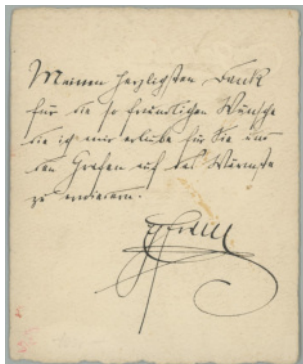 Meinen herzlichsten Dank
für die so freundlichen Wünsche
die ich mir erlaube für Sie und
den Grafen auf das Wärmste
zu erwiedern.